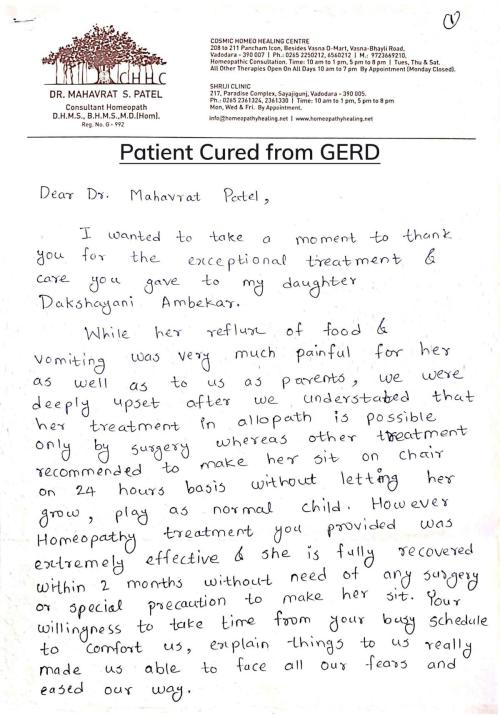 CHHC
DR. MAHAVRAT S. PATEL
Consultant Homeopath
D.H.M.S., B.H.M.S.,M.D.(Hom).
Reg. No. G - 992
COSMIC HOMEO HEALING CENTRE
208 to 211 Pancham Icon, Besides Vasna D-Mart, Vasna-Bhayli Road,
Vadodara - 390 007 | Ph.: 0265 2250212, 6560212 | M.: 9723669210.
Homeopathic Consultation, Time: 10 am to 1 pm, 5 pm to 8 pm | Tues, Thu & Sat.
All Other Therapies Open On All Days 10 am to 7 pm By Appointment (Monday Closed).
SHRIJI CLINIC
217, Paradise Complex, Sayajigunj, Vadodara - 390 005.
Ph.: 0265 2361324, 2361330 | Time: 10 am to 1 pm, 5 pm to 8 pm
Mon, Wed & Fri. By Appointment.
info@homeopathyhealing.net | www.homeopathyhealing.net
Patient Cured from GERD
Dear Dr. Mahavrat Patel,
I wanted to take a moment to thank
you for the exceptional treatment &
care you gave to my daughter
Dakshayani Ambekar.
While her reflux of food &
vomiting was very much painful for her
as well as to us as parents, we were
deeply upset after we understabd that
her treatment in allopath is possible
only by surgery whereas other treatment
recommended to make her sit on chair
on 24 hours basis without letting her
grow, play as normal child. However
Homeopathy treatment you provided was
extremely effective & she is fully recovered
within 2 months without need of any surgery
or special precaution to make her sit. Your
willingness to take time from your busy schedule
to comfort us, explain things to us really
made us able to face all our fears and
eased our way.